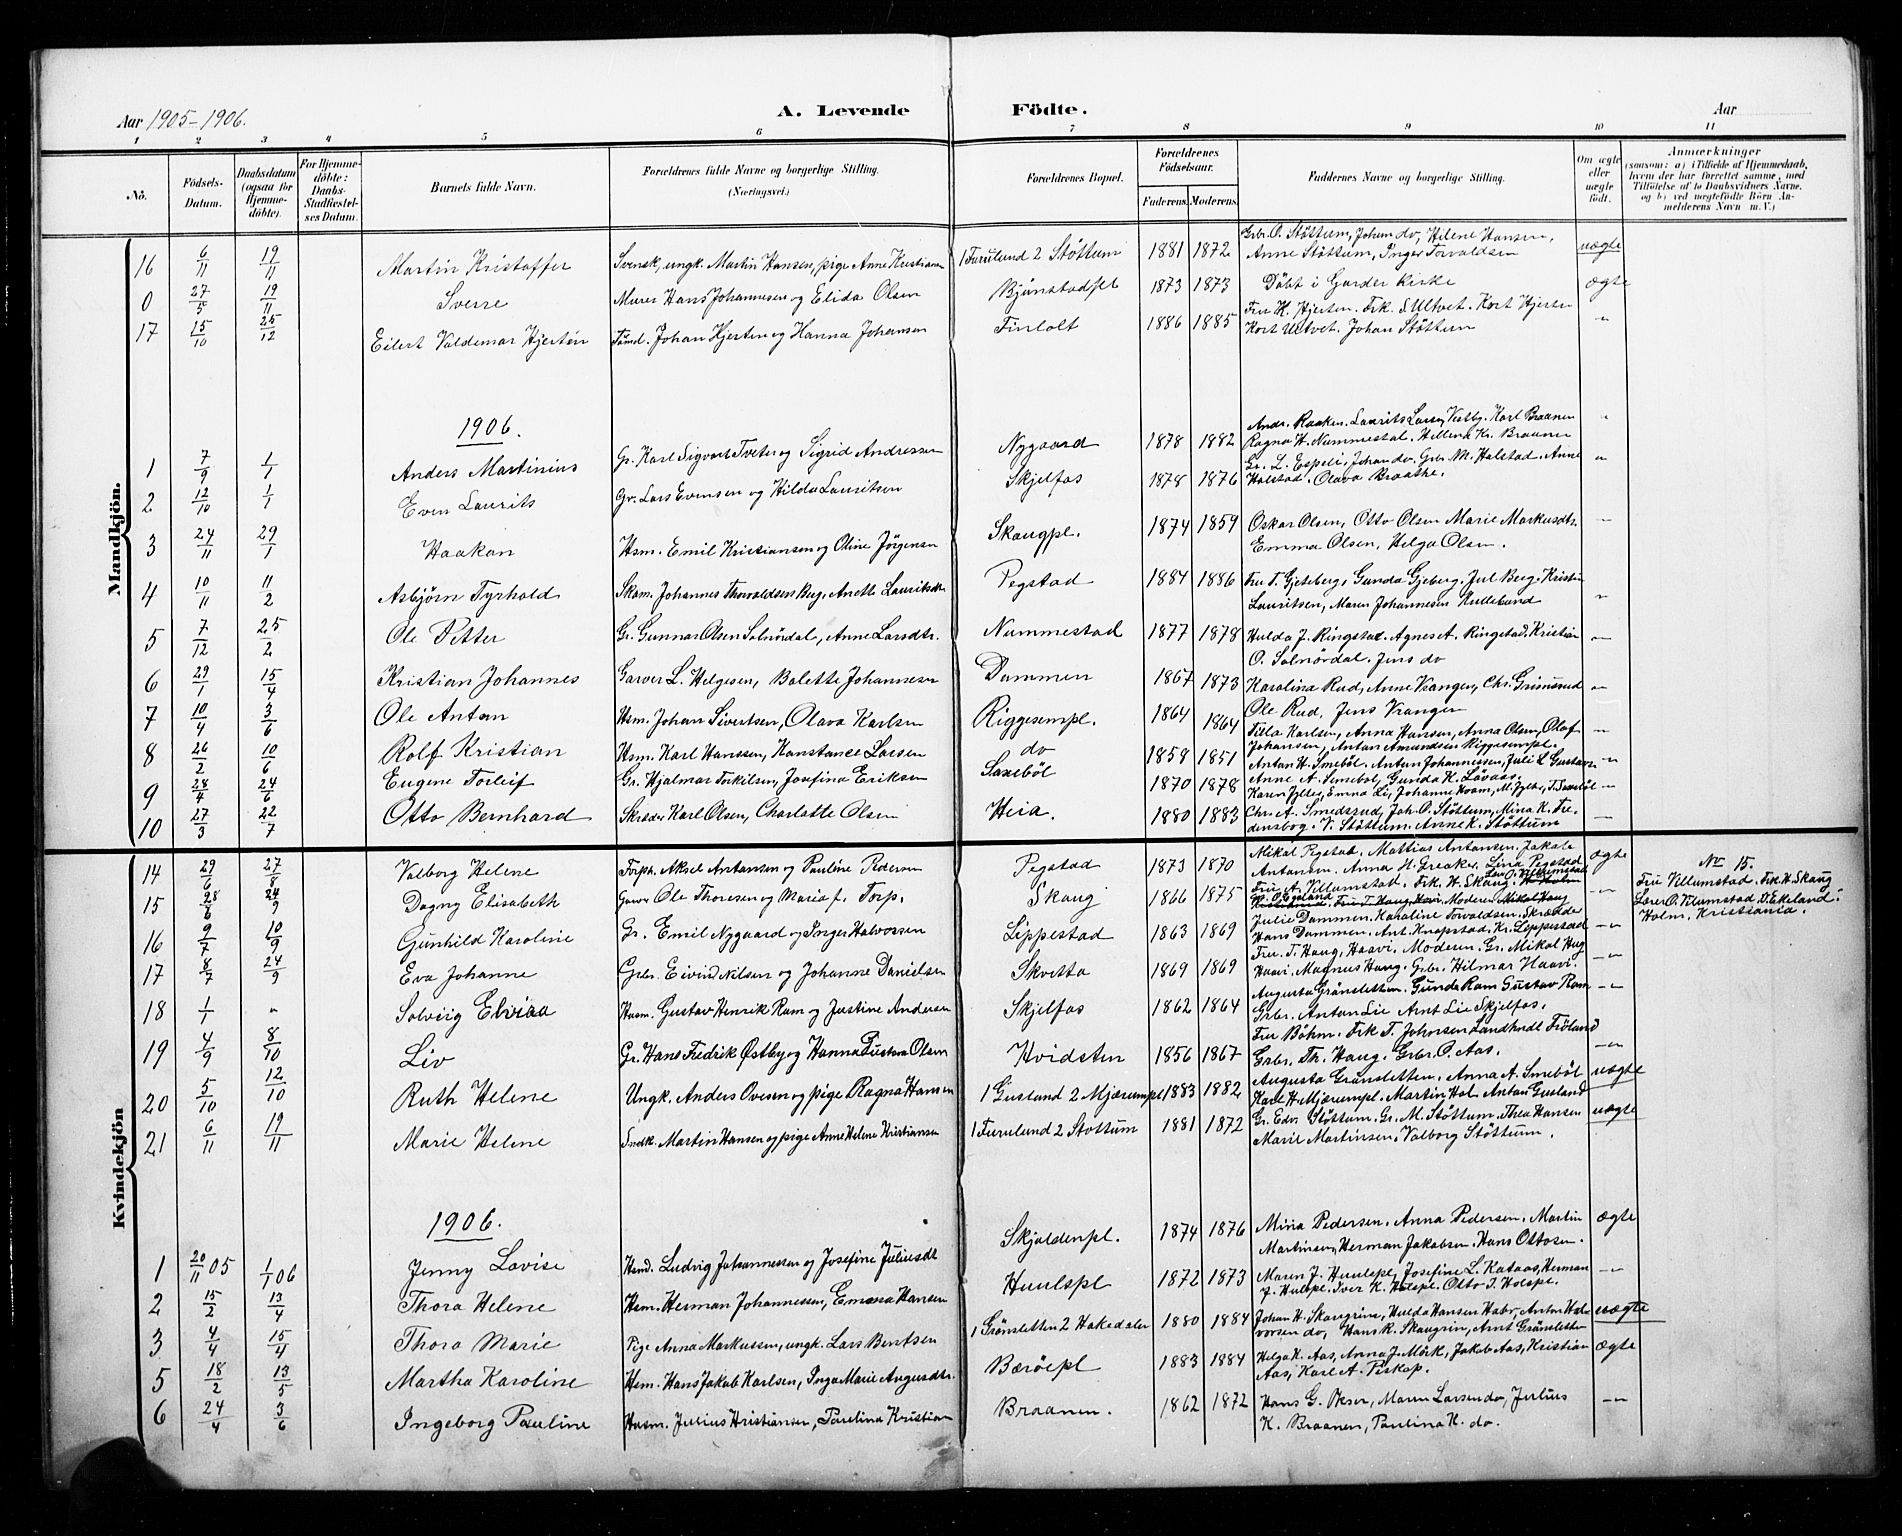 Aar 1905-1906. A. Levende Födte. Aar
1 2 3 4 5 6 7 8 9 10 11
No. Födsels-Datum. Daabsdatum (ogsaa for Hjemmedöbte). For Hjemmedöbte: Daabs-Stadfæstelses Datum. Barnets fulde Navn. Forældrenes fulde Navne og borgerlige Stilling. (Næringsvei.) Forældrenes Bopæl. Forældrenes Födselsaar. Faderens. Moderens. Faddernes Navne og borgerlige Stilling. Om ægte eller uægte født. Anmærkninger (saasom: a) i Tilfælde af Hjemmedaab, hvem der har forrettet samme, med Tilföielse af to Daabsvidners Navne, og b) ved uægtefödte Börn Anmelderens Navn m. V.)
Mandkjön.
16 6/11 19/11 Martin Kristoffer Svensk, ungk. Martin Hansen, pige Anne Kristiansen 1 Furulund 2 Stöttum 1881 1872 Grbr. O. Stöttum, Johan do, Helene Hansen, uægte
Anne Stöttum, Inger Torvaldsen
0 27/5 19/11 Sverre Murer Hans Johannesen og Elida Olsen 1873 1873 Döbt i Garder Kirke ægte
17 15/10 25/12 Eilert Valdemar Hjerten Johan Hjerten og Hanna Johansen 1886 1885 Fru H. Hjerten. Frk. S Ultvet. Kort Hjerten "
Kort Ultvet. Johan Stöttum
1906.
1 7/9 1/1 Anders Martinius Gr. Karl Sigvart Tveter og Sigrid Andressen Nygaard 1878 1882 Andr. Raaken. Laurits Larsen Vestby. Karl Braanen "
Ragna H. Nummestad. Kr. Braanen
2 12/10 1/1 Even Laurits Gr. Lars Evensen og Hilda Lauritsen Skjelfos 1878 1876 Gr. L. Espeli, Johan do. Grbr. M. Halstad. Anne "
Halstad. Olava Braathe.
3 24/11 29/1 Haakon Hsm. Emil Kristiansen og Oline Jørgensen Skaugpl. 1874 1859 Oskar Olsen, Otto Olsen Marie Markusdtr. "
Emma Olsen, Helga Olsen.
4 10/11 11/2 Asbjörn Tyrhold Johannes Thorvaldsen Anette Lauritsdtr Pegstad 1884 1886 Fru T. Gjeteberg, Gunda Gjeberg. Jul Berg. Kristin
Lauritsen, Maren Johannesen "
5 7/12 25/2 Ole Petter Gr. Gunnar Olsen Solnördal, Anne Larsdtr. Nummestad 1877 1878 Hulda J. Ringstad. Agnes A. Ringstad. Kristian "
O. Solnördal. Jens do
6 29/1 15/4 Kristian Johannes Garver L. Helgesen, Bolette Johannesen Dammen 1867 1873 Karolina Rud, Anne Vrangen, Chr. Grimsrud "
Ole Rud, Jens Vrangen
7 10/4 3/6 Ole Anton Hsm. Johan Sivertsen, Olava Karlsen Riggesempl. 1864 1864 Tilla Karlsen, Anna Hansen, Anna Olsen, Olaf "
Johansen, Anton Amundsen Riggesempl.
8 26/2 10/6 Rolf Kristian Hsm. Karl Hanssen, Konstance Larsen do 1859 1851 Anton H. Smeböl. Anton Johannessen, Juli L Gustavs "
Anne A. Smeböl, Gunda K. Låvaas.
9 28/4 24/6 Eugene Torleif Gr. Hjalmar Torkilsen, Josefina Eriksen Saxeböl 1870 1878 Karen Jylter, Emma Li, Johanne Hoam, M. Jylter, T. Saxeböl "
10 27/3 22/7 Otto Bernhard Skræder Karl Olsen, Charlotte Olsen Heia. 1880 1883 Chr. A. Smedsrud, Joh. O. Stöttum, Mina K. Fredensborg. V. Stöttum. Anne K. Stöttum "
Kvindekjön
14 29/6 27/8 Valborg Helene Forph. Aksel Antonsen og Pauline Pedersen Pegstad 1873 1870 Mikal Pegstad, Mattias Antonsen. Jakob ægte
Antonsen. Anna H. Greaker. Lina Pegstad
15 28/6 24/9 Dagny Elisabeth Garver Ole Thoresen og Maria f. Torp. Skaug 1866 1875 Fru A. Villumstad. Frk. H. Skaug "
16 9/7 10/9 Gunhild Karoline Gr. Emil Nygaard og Inger Halvorssen Lippestad 1863 1869 Julie Dammen. Karoline Torvaldsen. Skrædder "
Hans Dammen. Ant. Knapstad. Kr. Lippestad
17 8/7 24/9 Eva Johanne Grbr. Eivind Nilsen og Johanne Danielsen Skvetta 1869 1869 Fru. T. Haug, Haavi. Moderen. Gr. Mikal Hug "
Haavi. Magnus Haug. Grbr. Hilmar Haavi.
18 1/1 " Solveig Elvira Husm. Gustav Henrik Ram og Justine Andersen Skjelfos 1862 1864 Augusta Grönsletten. Gunda Ram Gustav Ram "
Grbr. Anton Lie Arnt Lie Skjelfos.
19 4/9 8/10 Liv Gr. Hans Fredrik Østby og Hanna Gustava Olsen Hvidsten 1856 1867 Fru Böhm. Frk T. Johnsen Landhndl Fröland "
Grbr. Th. Haug. Grbr. O. Aas.
20 5/10 12/10 Ruth Helene Ungk. Anders Ovesen og pige Ragna Hansen 1 Guslund 2 Mjærumpl 1883 1882 Augusta Grönsletten. Anna A. Smeböl uægte
Karl H. Mjærumpl. Martin Hol. Anton Guslund
21 6/11 19/11 Marie Helene Martin Hansen og pige Anne Helene Kristiansen 1 Furulund 2 Stöttum 1881 1872 Gr. Edv. Stöttum. Gr. M. Stöttum. Thea Hansen uægte
Marie Martinsen. Valborg Stöttum.
No 15.
Fru Villumstad. Frk. H. Skaug
Lærer O. Vilumstad O. Ekeland.
Holm, Kristiania.
1906.
1 20/11 05 1/1 06 Jenny Lovise Husmd. Ludvig Johannessen og Josefine Juliusdt Skjoldenpl. 1874 1876 Mina Pedersen. Anna Pedersen. Martin ægte
Martinsen, Herman Jakobsen. Hans Ottosen.
2 15/2 13/4 Thora Helene Hsm. Herman Johannessen, Emma Hansen Huulspl 1872 1873 Maren J. Huulspl, Josefine L. Kataas, Herman "
J. Hulspl. Iver K. Holspl. Otto J. Holspl.
3 4/4 15/4 Thora Marie Pige Anna Markussen, ungk. Lars Berntsen 1 Grönsletten 2 Hakedalen 1880 1884 Johan H. Skaugrim, Hulda Hansen Habr, Anton Halvorsen do, Hans K. Skaugrin, Arnt Grönsletten uægte
5 18/2 13/5 Martha Karoline Hsm. Hans Jakob Karlsen, Inga Marie Augustdtr. Bæröepl 1883 1884 Helga K. Aas, Anna J. Mörk, Jakob Aas, Kristian ægte
Aas, Karl A. Piskop.
6 24/4 3/6 Ingeborg Pauline Husm. Julius Kristiansen, Paulina Kristian Braanen. 1862 1872 Hans G. Okser, Maren Larsen do, Julius "
K. Braanen, Paulina K. do.